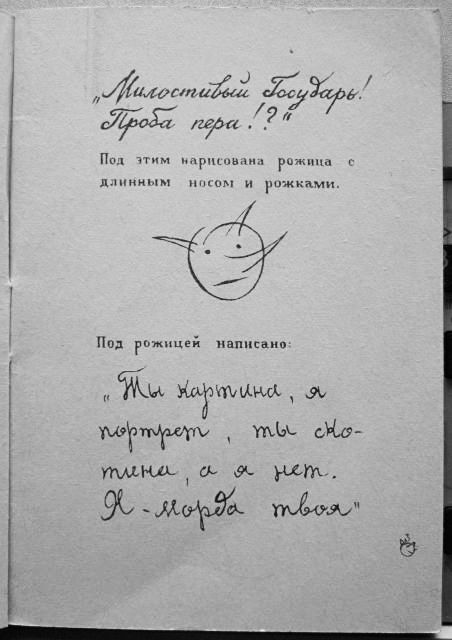 „Милостивый Государь!
Проба пера!?“
Под этим нарисована рожица с
длинным носом и рожками.
Под рожицей написано:
„Ты картина, я
портрет, ты ско-
тина, а я нет.
Я - морда твоя"